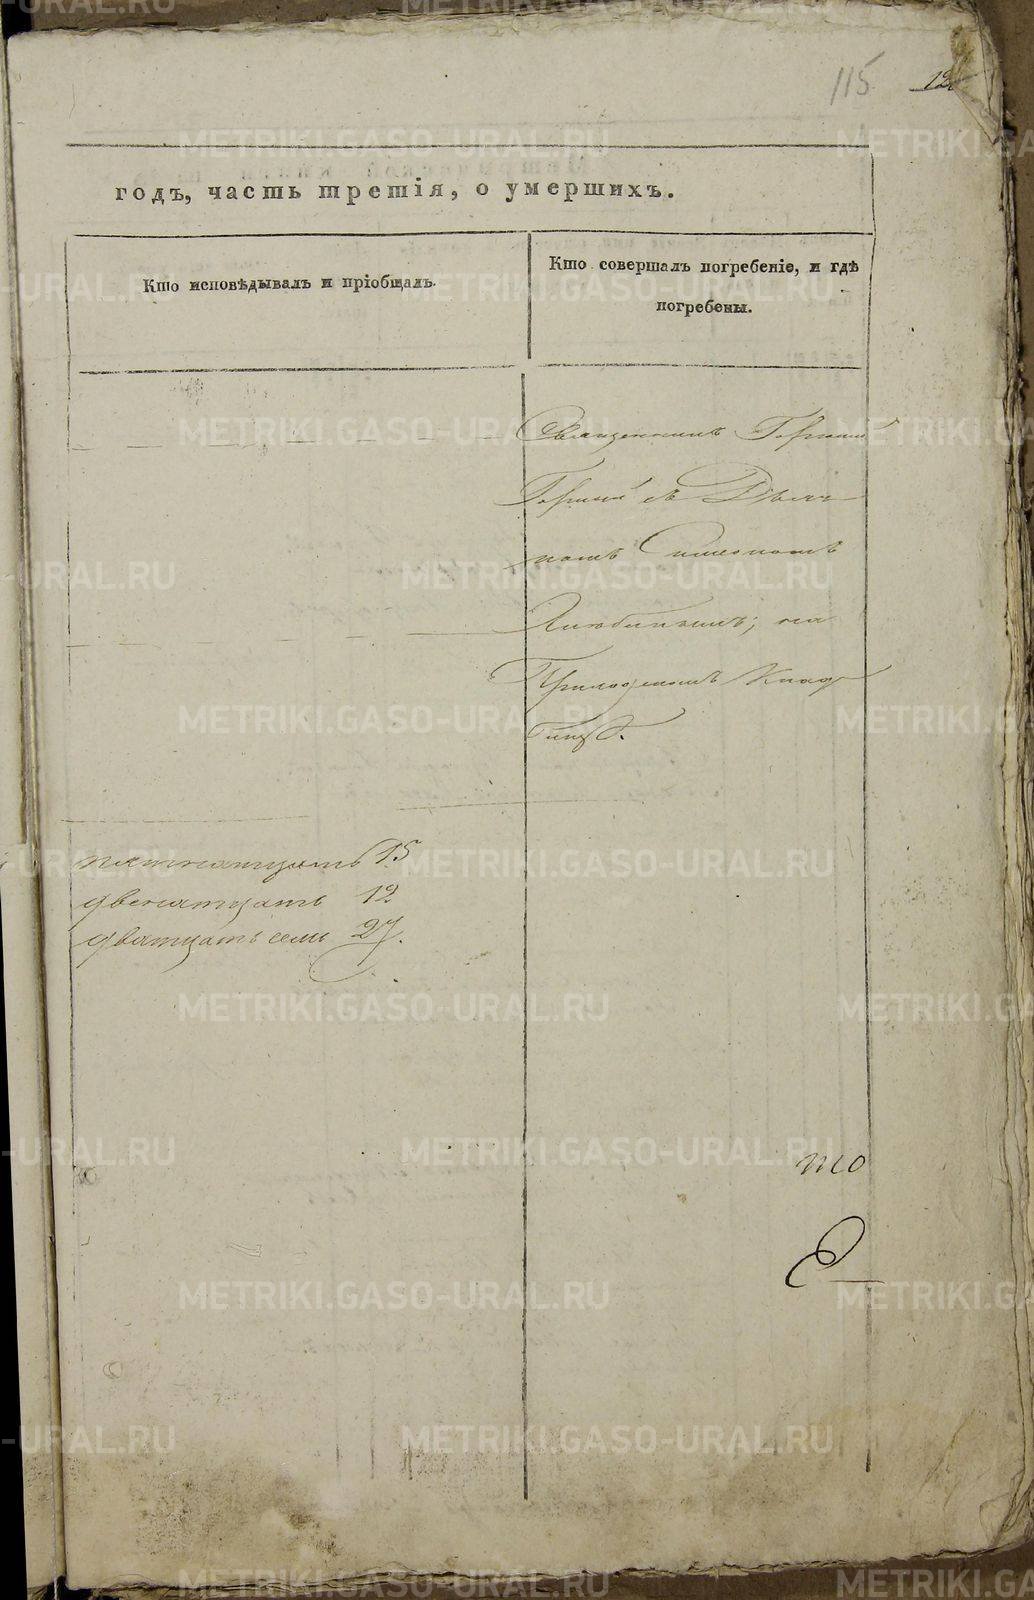 115
12
годъ, часть третія, о умершихъ.
Кто исповѣдывалъ и пріобщалъ.
Кто совершалъ погребеніе, и гдѣ
погребены.
Священникъ
съ Дьяч
комъ Симеономъ
на
Приходскомъ Клад
бищѣ.
пятнатцать 15
двенатцать 12
дватцать семь 27.
то
METRIKI.GASO-URAL.RU